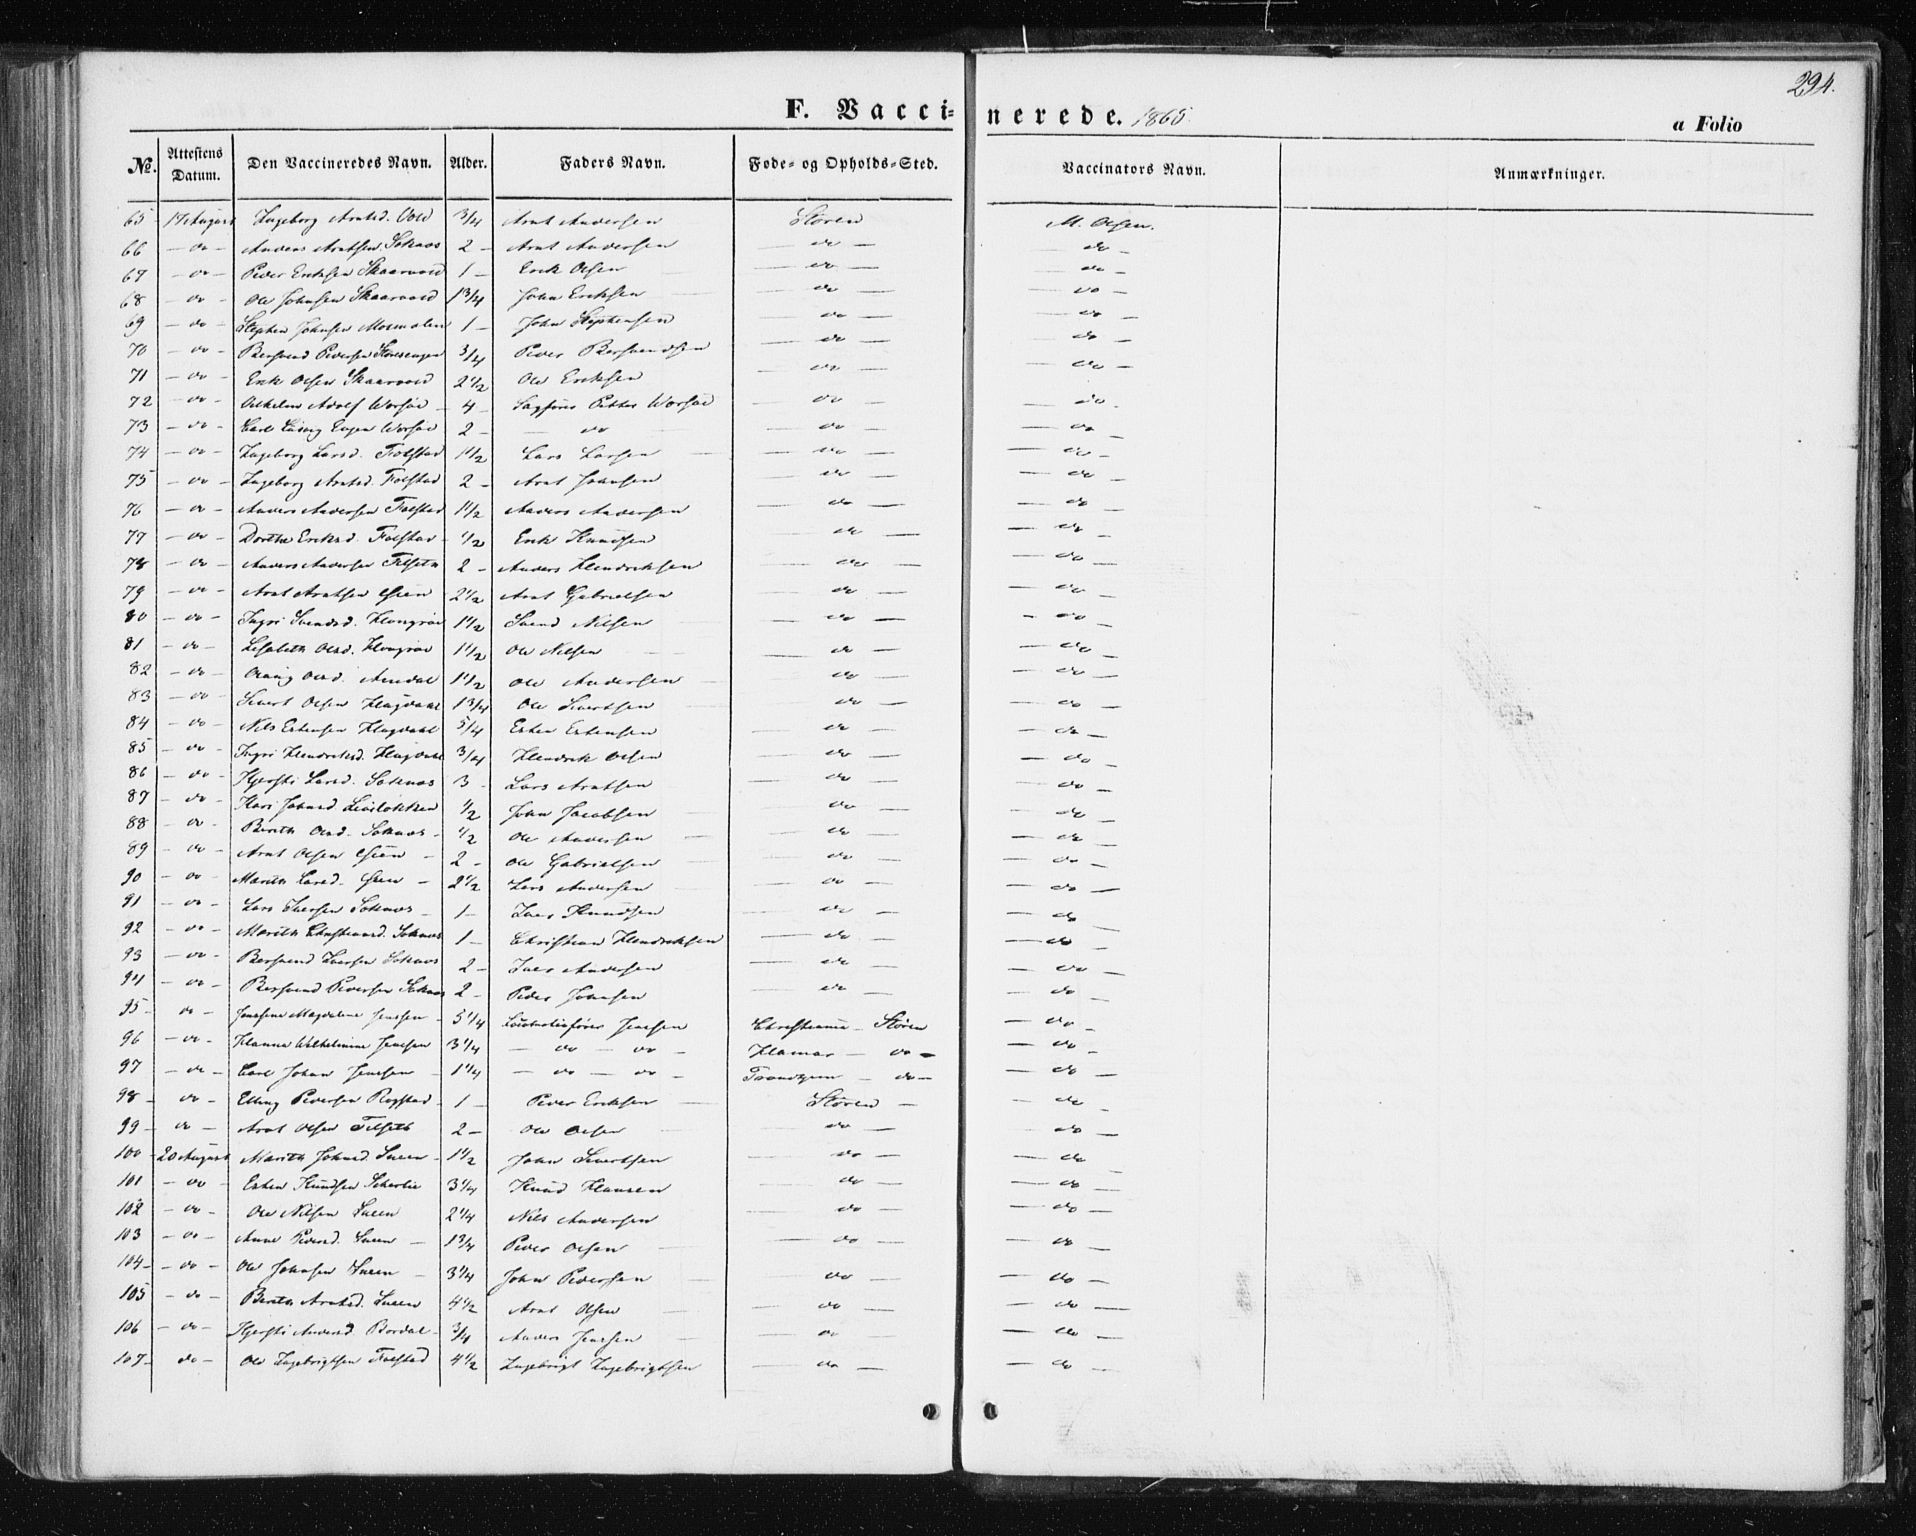 294.
F. Vaccinerede. 1865.
a Folio
No. Attestens Datum. Den Vaccineredes Navn. Alder. Faders Navn. Føde- og Opholds-Sted. Vaccinators Navn. Anmærkninger.
65 - 17 August Ingeborg Arntsd. 3/4 Arnt Andersen Støren M. Olsen.
66 - do - Anders Arntsen Soknæs 2 - Arnt Andersen - do - - do -
67 - do - Peder Eriksen Skaarvold 1 - Erik Olsen - do - - do -
68 - do - Ole Johnsen Skaarvold 1 3/4 John Eriksen - do - - do -
69 - do - Stephen Johnsen Moemalen 1 - John Stephensen - do - - do -
70 - do - Bersvend Pedersen Storesengen 3/4 Peder Bersvendsen - do - - do -
71 - do - Erik Olsen Skaarvold 2 1/2 Ole Eriksen - do - - do -
72 - do - Vilhelm Adolf Worsøe - 4 - Sagfører Petter Worsøe - do - - do -
73 - do - Carl Eugen Worsøe 2 - - do - do - - do -
74 - do - Ingeborg Larsd. Folstad 1 1/2 Lars Larsen - do - - do -
75 - do - Ingeborg Arntsd. Folstad 2 - Arnt Johnsen - do - - do -
76 - do - Anders Andersen Folstad 1 1/2 Anders Andersen - do - - do -
77 - do - Dorthe Eriksd. Folstad - 1/2 Erik Knudsen - do - - do -
78 - do - Anders Andersen Filseth 2 - Anders Hendriksen - do - - do -
79 - do - Arnt Arntsen 2 1/2 Arnt Gabrielsen - do - - do -
80 - do - Ingri Svendsd. Hongrøe 1 1/2 Svend Nilsen - do - - do -
81 - do - Lisabeth Olsd. Hongrøe 1 1/2 Ole Nilsen - do - - do -
82 - do - Olsd. 1 1/2 Ole Andersen - do - - do -
83 - do - Sivert Olsen Hugdaal 1 3/4 Ole Sivertsen - do - - do -
84 - do - Nils Estensen Hugdaal 5/4 Esten Estensen - do - - do -
85 - do - Ingri Hendriksd. Hugdaal 3/4 Hendrik Olsen - do - - do -
86 - do - Kjersti Larsd. Soknæs 3 - Lars Arntsen - do - - do -
87 - do - Kari Johnsd. 1/2 John Jacobsen - do - - do -
88 - do - Berith Olsd. Soknæs - 1/2 Ole Andersen - do - - do -
89 - do - Arnt Olsen - 2 - Ole Gabrielsen - do - - do -
90 - do - Marith Larsd. - 2 1/2 Lars Andersen - do - - do -
91 - do - Lars Iversen Soknæs - 1 - Iver Knudsen - do - - do -
92 - do - Marith Christiansd. Soknæs 1 - Christian Hendriksen - do - - do -
93 - do - Bersvend Iversen Soknæs 2 - Iver Andersen - do - - do -
94 - do - Bersvend Pedersen Soknæs 2 - Peder Johnsen - do - - do -
95 - do - Magdalene Jensen - 5 1/4 Jensen Christiania - Støren - do -
96 - do - Hanna Wilhelmine Jensen 3 1/4 - do - do - Hamar - do - - do -
97 - do - Carl Johan Jensen - 1 1/4 - do - do - Trondhjem - do - - do -
98 - do - Elling Pedersen Rogstad - 1 - Peder Eriksen Støren - - do -
99 - do - Arnt Olsen Filseth 2 - Ole Olsen - do - - do -
100 - 20 August Marith Johnsd. Sveen - 1 1/2 John Sivertsen - do - - do -
101 - do - Esten Knudsen 3 1/4 Knud Hansen - do - - do -
102 - do - Ole Nilsen Sveen 2 1/4 Nils Andersen - do - - do -
103 - do - Anne Pedersd. Sveen - 1 3/4 Peder Olsen - do - - do -
104 - do - Ole Johnsen Sveen - 3 1/4 John Pedersen - do - - do -
105 - do - Berith Arntsd. Sveen 4 1/2 Arnt Olsen - do - - do -
106 - do - Kjersti Andersd. Bordal - 3/4 Anders Jensen - do - - do -
107 - do - Ole Ingebrigtsen Folstad 4 1/2 Ingebrigt Ingebrigtsen - do - - do -